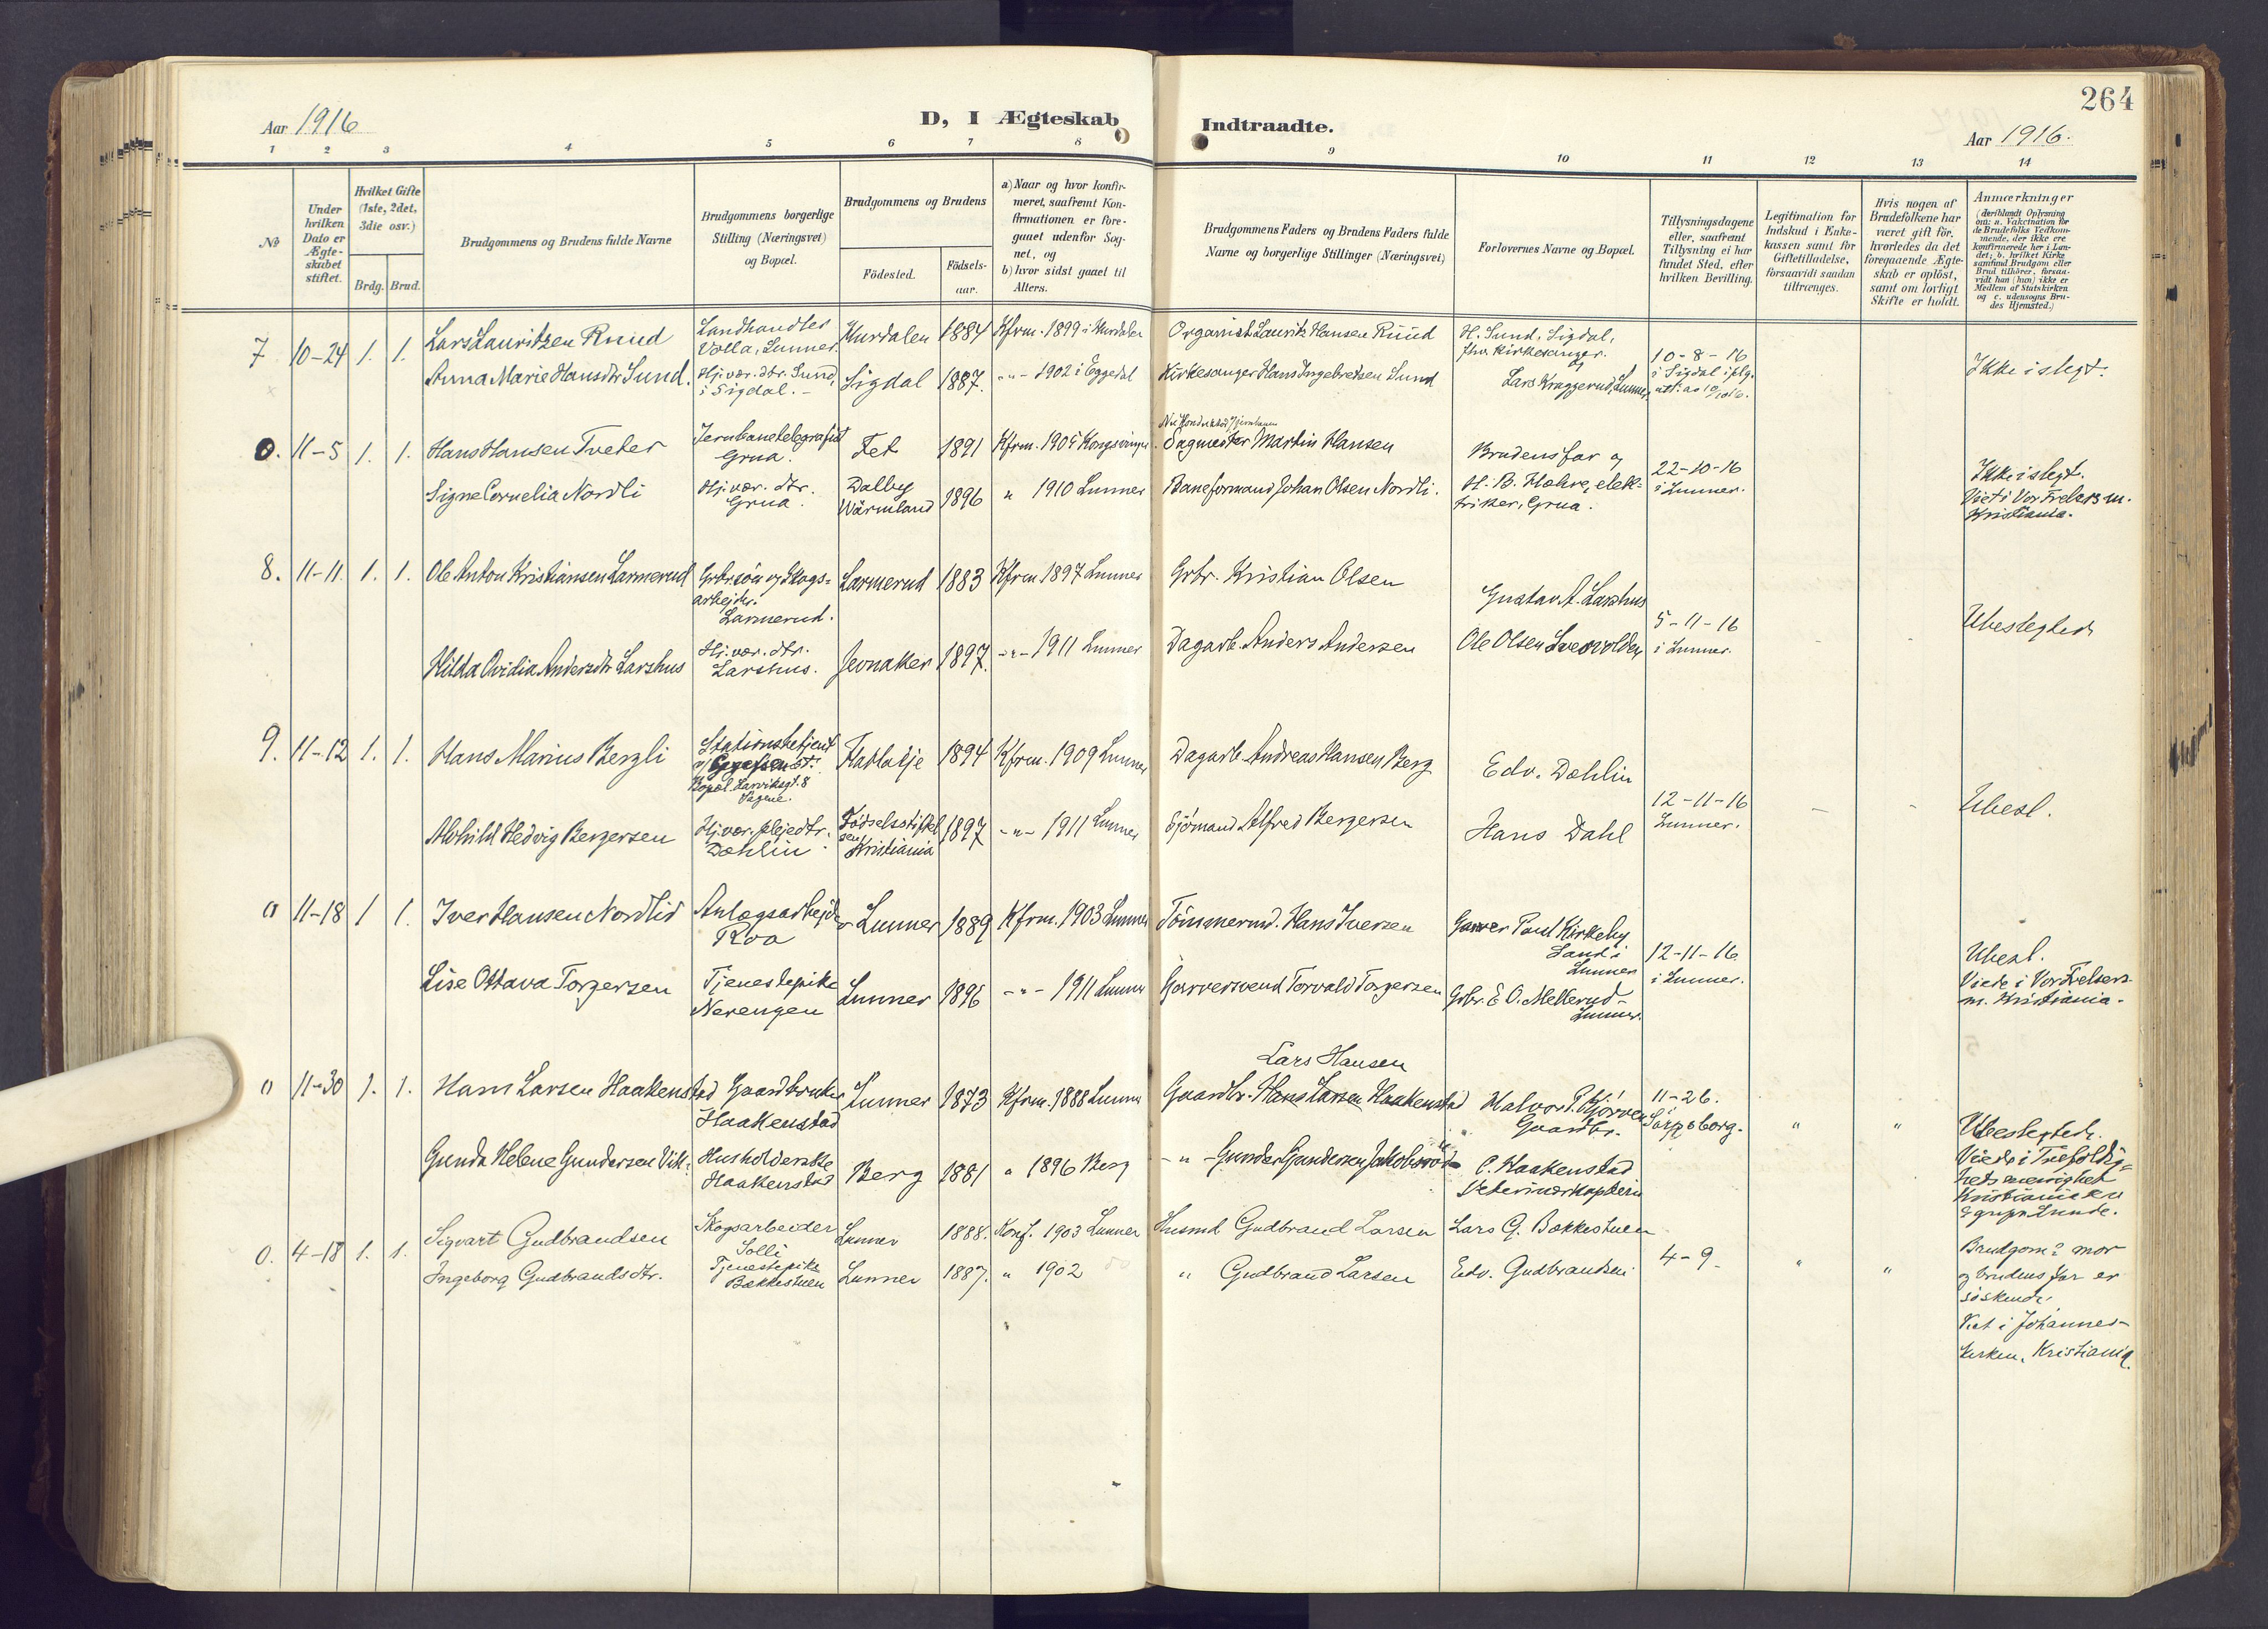 264
Aar 1916
D, I Ægteskab
Indtraadte.
Aar 1916.
1 2 3 4 5 6 7 8 9 10 11 12 13 14
No
Under
hvilken
Dato er
Ægte-
skabet
stiftet.
Hvilket Gifte
(1ste, 2det,
3die osv.)
Brdg. Brud.
Brudgommens og Brudens fulde Navne
Brudgommens borgerlige
Stilling (Næringsvei)
og Bopæl.
Brudgommens og Brudens
Födested.
Födsels-
aar.
a) Naar og hvor konfir-
meret, saafremt Kon-
firmationen er fore-
gaaet udenfor Sog-
net, og
b) hvor sidst gaaet til
Alters.
Brudgommens Faders og Brudens Faders fulde
Navne og borgerlige Stillinger (Næringsvei)
Forlovernes Navne og Bopæl.
Tillysningsdagene
eller, saafremt
Tillysning ei har
fundet Sted, efter
hvilken Bevilling.
Legitimation for
Indskud i Enke-
kassen samt for
Giftetilladelse,
forsaavidt saadan
tiltrænges.
Hvis nogen af
Brudefolkene har
været gift för,
hvorledes da det
foregaaende Ægte-
skab er oplöst,
samt om lovligt
Skifte er holdt.
Anmærkninger
(deriblandt Oplysning
om: a. Vakcination for
de Brudefolks Vedkom-
mende, der ikke ere
konfirmerede her i Lan-
det; b. hvilket Kirke-
samfund Brudgom eller
Brud tilhörer, forsaa-
vidt han (hun) ikke er
Medlem af Statskirken
og c. udensogns Bru-
des Hjemsted.)
7 10-24 1. 1.
Lars Lauritzen Ruud
Landhandler
Volla, Lunner.
Hurdalen 1884 Kfrm. 1899 i Hurdalen
Organist Lauritz Hansen Ruud
H. Sund, Sigdal,
fhv. kirkesanger.
og
Anna Marie Hansdtr Sund.
Hj.vær. dtr. Sund,
i Sigdal.-
Sigdal 1887. -"- 1902 i Eggedal
Kirkesanger Hans Ingebretsen Sund
Lars Kraggerud, Lunner.
10-8-16
i Sigdal iflg.
Ikke i slegt.
0. 11-5 1. 1.
Hans Hansen Tveter
Jernbanetelegrafist
Grua.
Fet 1891 Kfrm. 1905 Kongsvinger
Sagmester Martin Hansen
Brudens far og
H. B. Hahre, elek-
triker, Grua.
Signe Cornelia Nordli
Hj.vær. dtr.
Grua.
Dalby
Wärmland 1896 " 1910 Lunner
Baneformand Johan Olsen Nordli.
22-10-16
i Lunner.
Ikke i slegt.
Viet i Vor Frelsers m.
Kristiania.
8. 11-11. 1. 1.
Ole Anton Kristiansen Larmerud
Grbr.søn og Skogs-
arbejder.
Larmerud.
Larmerud 1883 Kfrm 1897 Lunner
Grbr. Kristian Olsen
Gustav A. Larshus
Hilda Ovidia Andersdtr Larshus
Hj.vær. dtr.
Larshus.
Jevnaker 1897. -"- 1911 Lunner
Dagarb. Anders Andersen
Ole Olsen
5-11-16
i Lunner.
Ubeslegtede
9. 11-12 1. 1.
Hans Marius Bergli
Stationsbetjent
Bopæl. Larviksgt. 8
Sagene.
1894 Kfrm. 1909 Lunner
Dagarb. Andreas Hansen Berg
Edv. Dæhlin
Alvhild Hedvig Bergersen
Hj.vær. plejedtr.
Dæhlin.
Fødselsstiftel
sen
Kristiania
1897 -"- 1911 Lunner
Sjömand Alfred Bergersen
Hans Dahl
12-11-16
Lunner.
Ubesl.
0 11-18 1 1.
Iver Hansen Nordlid
Anlægsarbejder
Roa
Lunner 1889 Kfrm. 1903 Lunner
Tömmermd. Hans Iversen
Garver Paul Kirkeby
Sand i
Lunner
Lise Ottava Torgersen
Tjenestepike
Nerengen
Lunner 1896 -"- 1911 Lunner
Garversvend Torvald Torgersen
Grbr. E O. Mellerud-
Lunner.
12-11-16
i Lunner.
Ubesl.
Viede i Vor Frelsers-
m. Kristiania.
0 11-30 1. 1.
Hans Larsen Haakenstad
Gaardbruker
Haakenstad
Lunner 1873 Kfrm. 1888 Lunner
Lars Hansen
Gaardbr. Hans Larsen Haakenstad
Halvor P.
Gaardbr.
11-26.
Sarpsborg.
Gunda Helene Gundersen Vik.
Husholderske
Haakenstad
Berg 1881 " 1896 Berg
-"- Gunder Gundersen Jakobsröd
C. Haakenstad
Veterinærkaptein
" "
Ubeslegtede.
Viede i Trefoldig-
hets menighet
Kristiania av
0. 4-18 1. 1.
Sigvart Gudbrandsen
Skogsarbeider
Solli
Lunner 1888. Konf. 1903 Lunner
Husmd Gudbrand Larsen
Lars G. Bækkestuen
Ingeborg Gudbrandsdtr.
Tjenestepike
Bækkestuen
Lunner 1887. " 1902
" Gudbrand Larsen
Edv. Gudbrandsen
4-9.
" "
Brudgoms mor
og brudens far er
söskende.
Viet i Johannes-
kirken, Kristiania.